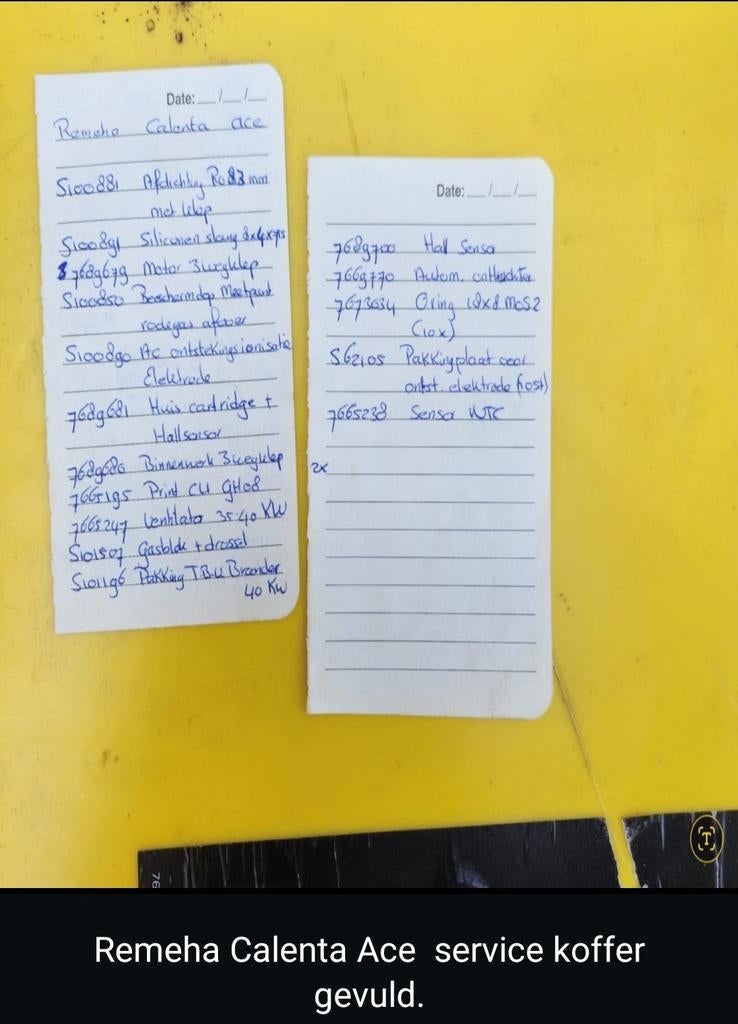 Date: __/__/__
Remeha Calenta ace
S100881 Afdichting R083 mm
met klep
S100891 Siliconen slang 8x4x75
7689679 Motor 3wegklep
S100850 Beschermdop Meetpunt
rookgas afvoer
S100890 AC ontstekings ionisatie
Elektrode
7689681 Huis cartridge +
Hallsensor
7689680 Binnenwerk 3wegklep
7665195 Print CU GH08
7665247 Ventilator 35-40 KW
S101507 Gasblok + drossel
S101196 Pakking T.B.U Brander
40 KW
Date: __/__/__
7689700 Hall Sensor
7669770 Autom. ontluchter
7673634 Oring 18x8 MoS2
(10x)
S62105 Pakkingplaat voor
ontst. elektrode (10st)
7665238 Sensor NTC
2x
76
T
Remeha Calenta Ace service koffer
gevuld.